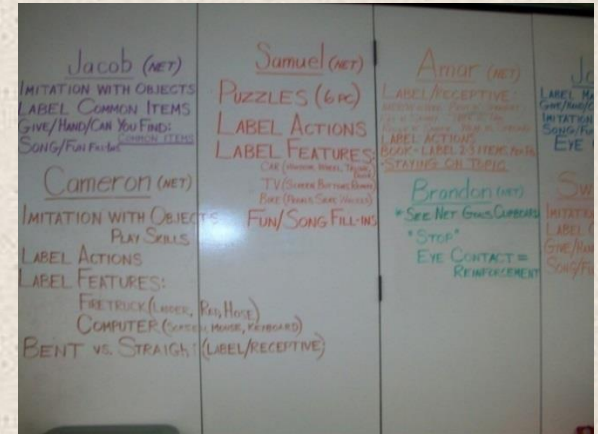 Jacob (NET)
IMITATION WITH OBJECTS
LABEL COMMON ITEMS
GIVE/HAND/CAN YOU FIND:
COMMON ITEMS
SONG/FUN
Cameron (NET)
IMITATION WITH OBJECTS
PLAY SKILLS
LABEL ACTIONS
LABEL FEATURES:
FIRETRUCK (LADDER, RED, HOSE)
COMPUTER (SCREEN, MOUSE, KEYBOARD)
BENT VS. STRAIGHT (LABEL/RECEPTIVE)
Samuel (NET)
PUZZLES (6 PC)
LABEL ACTIONS
LABEL FEATURES:
CAR (WHEEL,
TV (SCREEN, BUTTONS,
FUN/SONG FILL-INS
Amar (NET)
LABEL/RECEPTIVE:
LABEL ACTIONS
BOOK - LABEL 2-3 ITEMS
-STAYING ON TOPIC
Brandon (NET)
*SEE NET GOALS CLIPBOARD
"STOP"
EYE CONTACT =
REINFORCEMENT
LABEL
GIVE/HAND
IMITATION
SONG/FUN
EYE
IMITATION
LABEL
GIVE/HAND
SONG/FUN